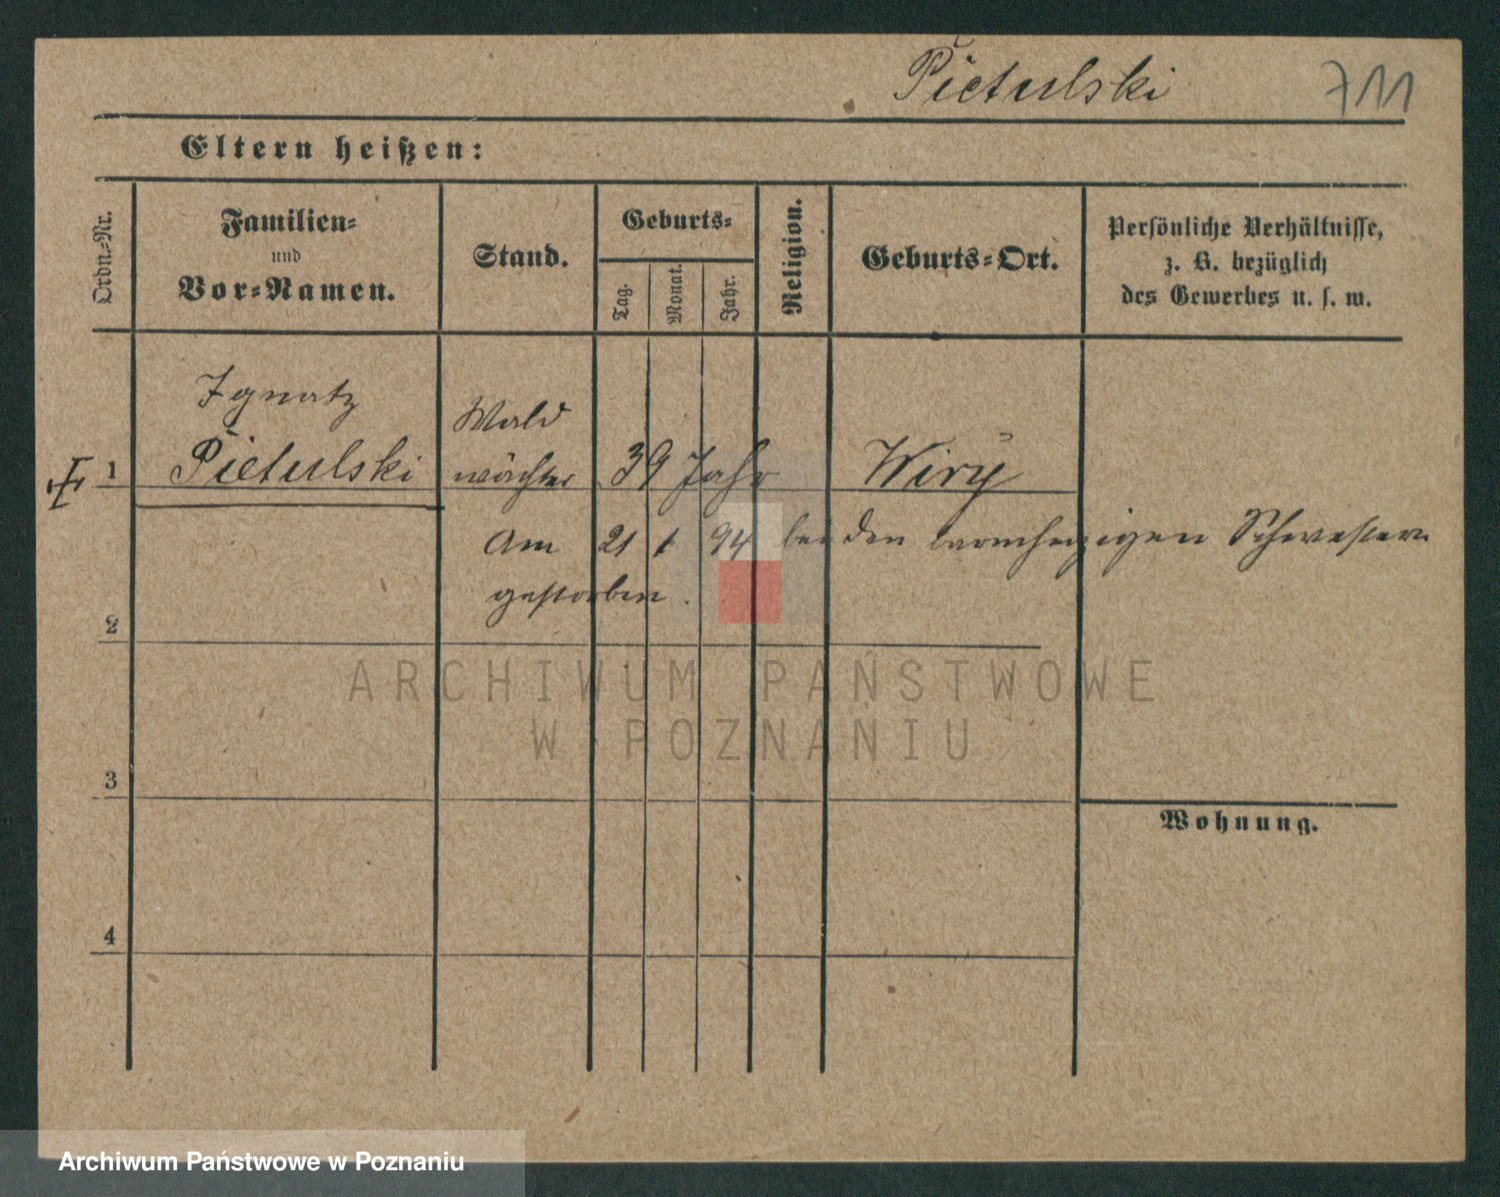 Pietulski 711
Eltern heißen:
Ordn.-Nr.
Familien-
und
Vor-Namen.
Stand.
Geburts-
Tag.
Monat.
Jahr.
Religion.
Geburts-Ort.
Persönliche Verhältnisse,
z. B. bezüglich
des Gewerbes u. s. w.
Ignatz
Wald
1 Pietulski wächter 39 Jahr Wiry
Am 21 1 94 bei den barmherzigen Schwestern
gestorben.
2
ARCHIWUM PAŃSTWOWE
W POZNANIU
3
Wohnung.
4
Archiwum Państwowe w Poznaniu